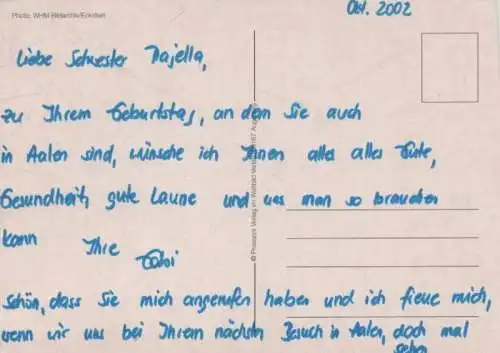 Photo: WHM Bildarchiv/Eckebert
Okt. 2002
Liebe Schwester Najella,
zu Ihrem Geburtstag, an dem Sie auch
in Aalen sind, wünsche ich Ihnen alles alles Gute,
Gesundheit, gute Laune und was man so brauchen
kann
Ihre
Gabi
Schön, dass Sie mich angerufen haben und ich freue mich,
wenn wir uns bei Ihrem nächsten Besuch in Aalen, doch mal
sehen